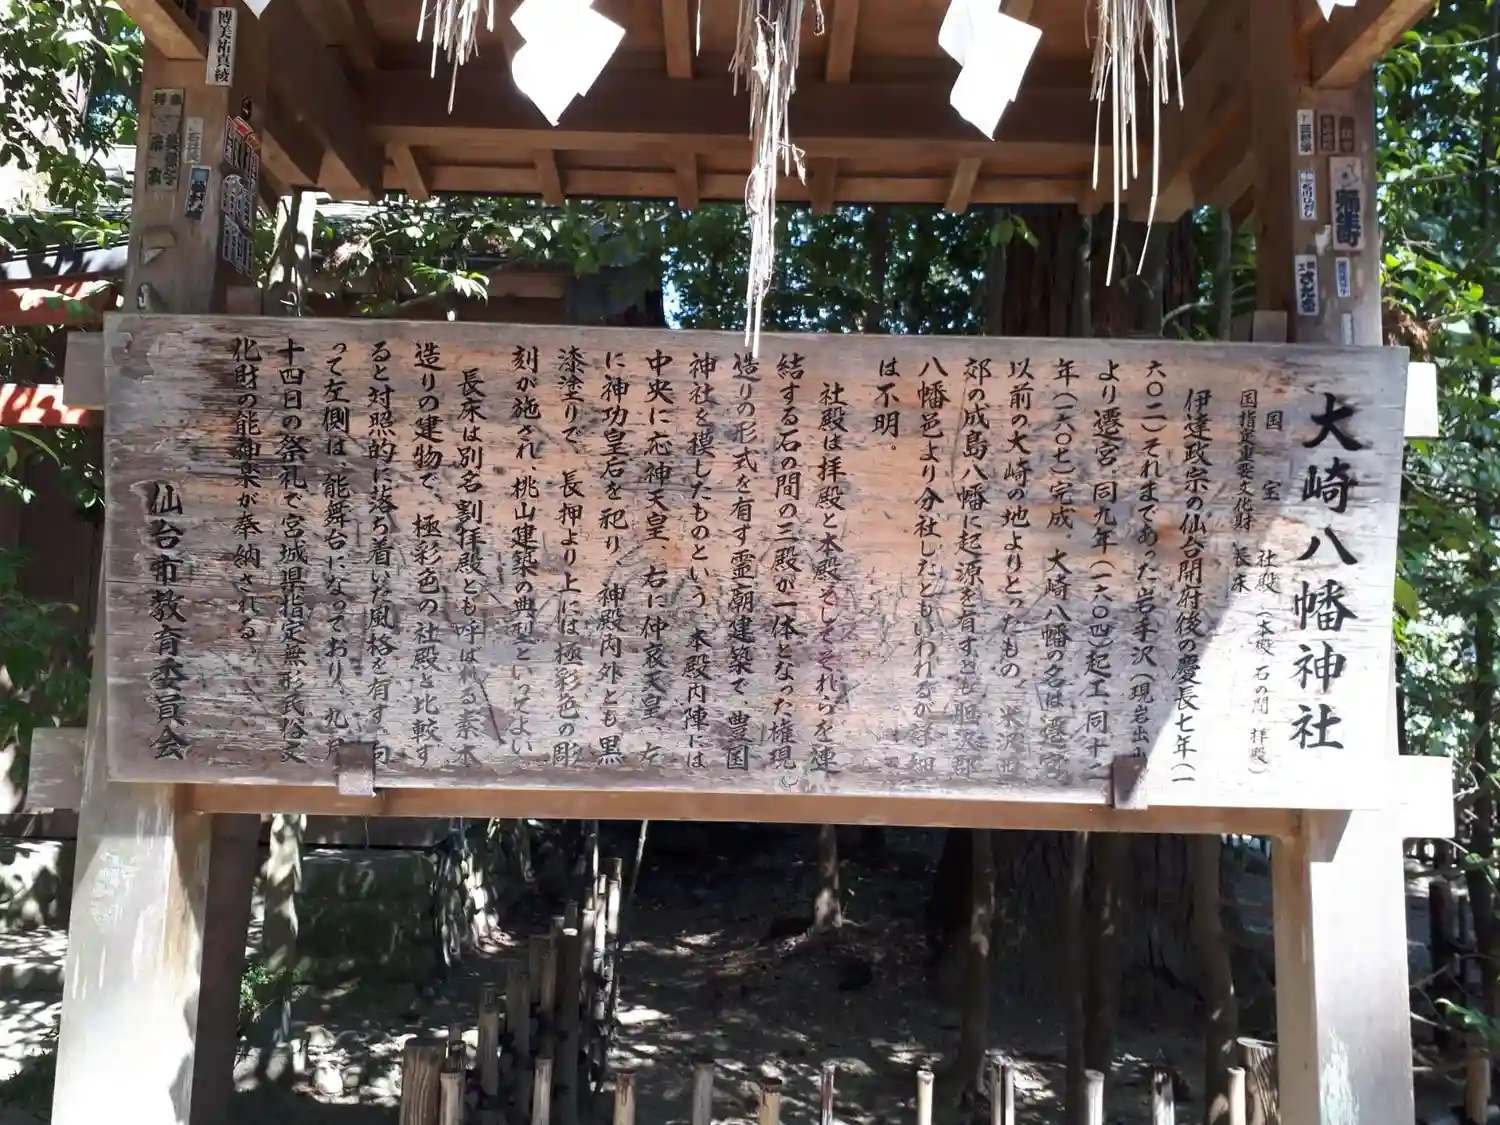 大崎八幡神社
国宝 社殿(本殿 石の間 拝殿)
国指定重要文化財 長床
伊達政宗の仙台開府後の慶長七年(一
六〇二)それまであった岩手沢(現岩出山)
より遷宮、同九年(一六〇四)起工、同十二
年(一六〇七)完成。大崎八幡の名は遷宮
以前の大崎の地よりとったもの。米沢西
郊の成島八幡に起源を有すとも胆沢郡
八幡邑より分社したともいわれるが詳細
は不明。
社殿は拝殿と本殿そしてそれらを連
結する石の間の三殿が一体となった権現
造りの形式を有す霊廟建築で、豊国
神社を模したものという。本殿内陣には
中央に応神天皇、右に仲哀天皇、左
に神功皇后を祀り、神殿内外とも黒
漆塗りで、長押より上には極彩色の彫
刻が施され、桃山建築の典型といってよい。
長床は別名割拝殿とも呼ばれる素木
造りの建物で、極彩色の社殿と比較す
ると対照的に落ち着いた風格を有す。向
って左側は、能舞台になっており、九月
十四日の祭礼で宮城県指定無形民俗文
化財の能神楽が奉納される。
仙台市教育委員会
博美祐真綾